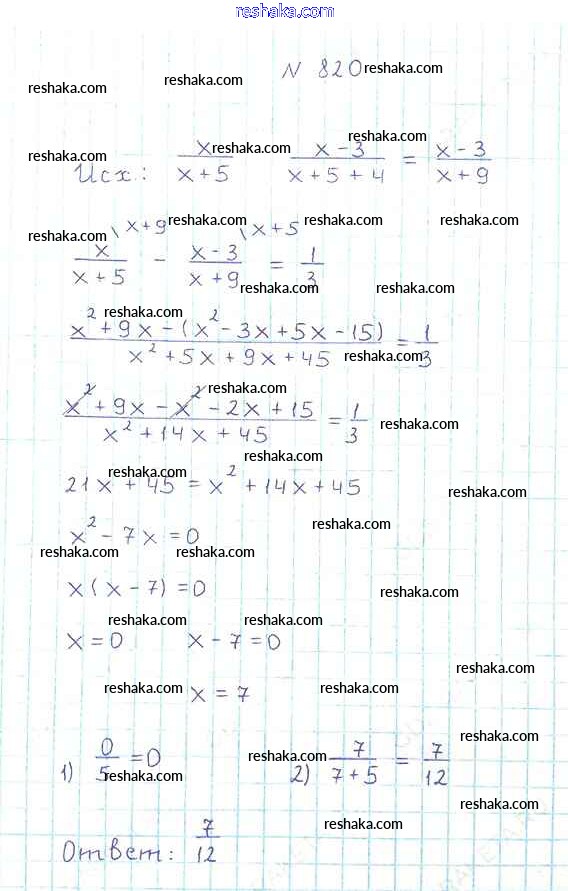 reshaka.com
№ 820 reshaka.com
reshaka.com reshaka.com
reshaka.com
Исх: x/(x+5) reshaka.com (x-3)/(x+5+4) = (x-3)/(x+9)
reshaka.com reshaka.com reshaka.com
reshaka.com
x/(x+5) \x+9 - (x-3)/(x+9) \x+5 = 1/3
reshaka.com reshaka.com
reshaka.com
(x²+9x-(x²-3x+5x-15))/(x²+5x+9x+45) = 1/3
reshaka.com
reshaka.com
(x²+9x-x²-2x+15)/(x²+14x+45) = 1/3
reshaka.com
reshaka.com
reshaka.com
21x+45=x²+14x+45
reshaka.com
reshaka.com
x²-7x=0
reshaka.com reshaka.com
x(x-7)=0
reshaka.com
reshaka.com reshaka.com
x=0 x-7=0
reshaka.com
reshaka.com x=7 reshaka.com
reshaka.com
1) 0/5=0 2) 7/(7+5) = 7/12
reshaka.com
reshaka.com
reshaka.com
reshaka.com
Ответ: 7/12